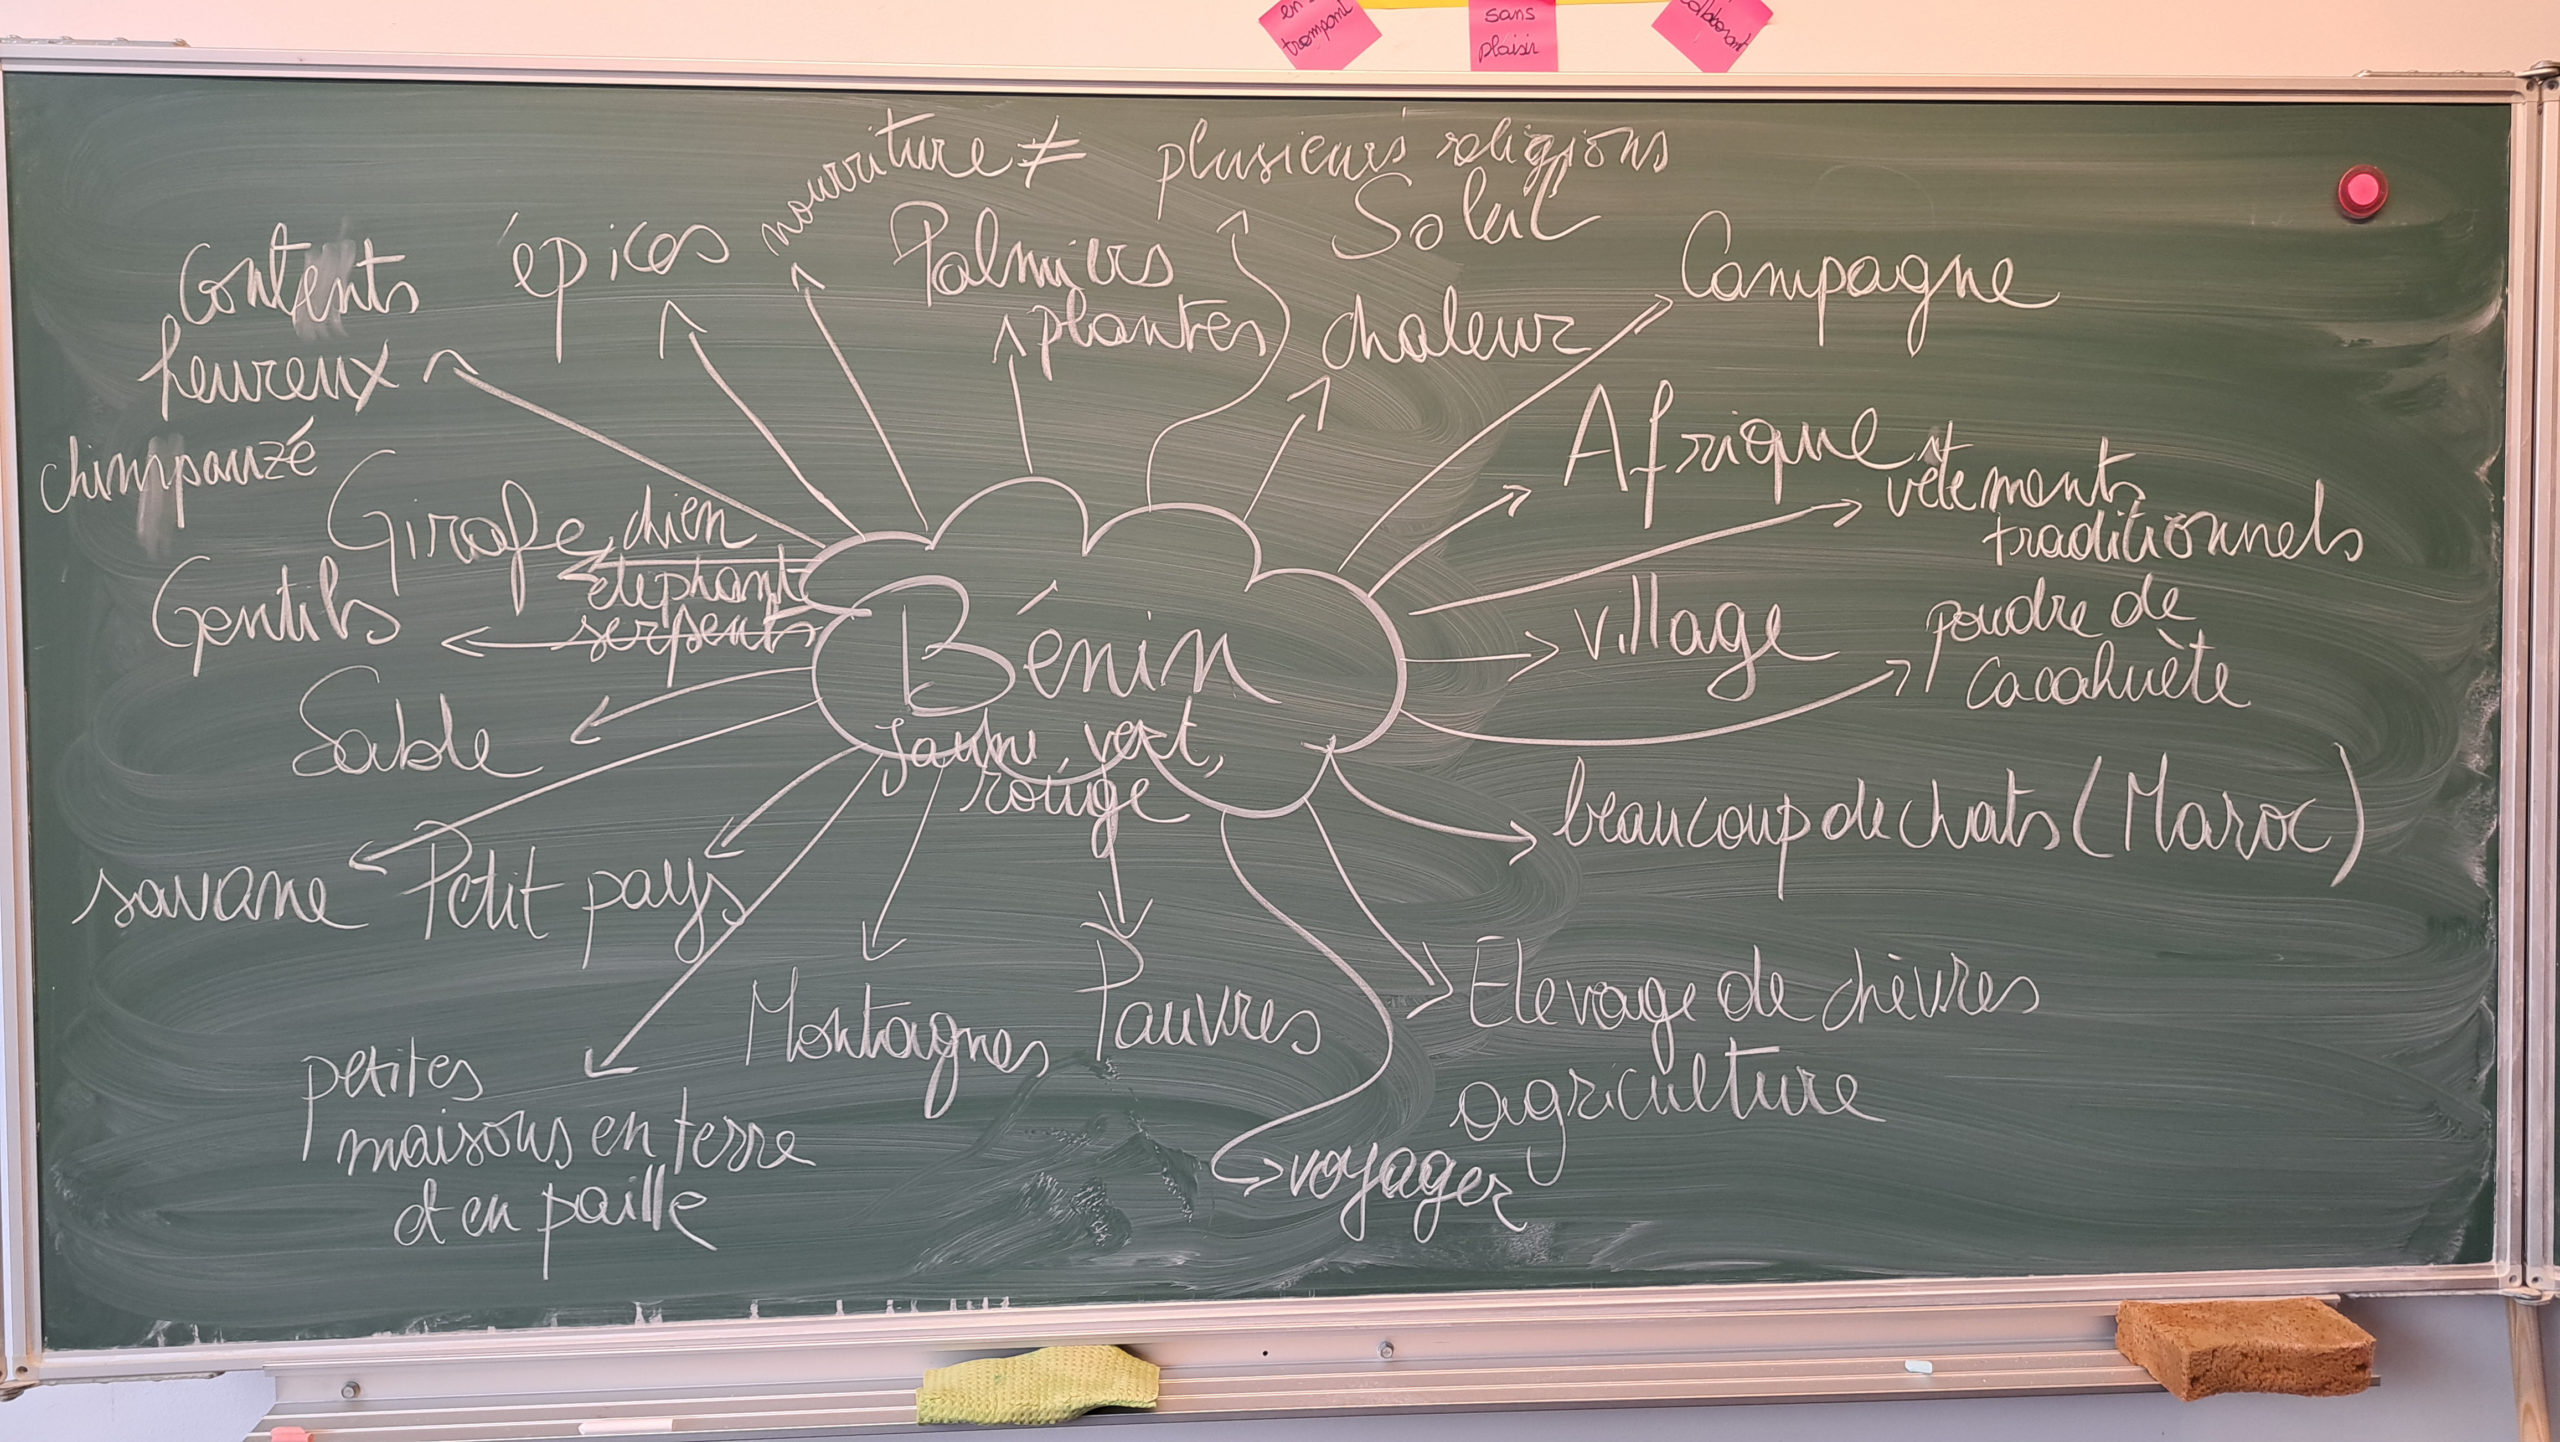 en
trompant
sans
plaisir
collaborant
nourriture ≠
plusieurs religions
Soleil
Contents
heureux
épices
Palmiers
plantes
chaleur
Campagne
chimpanzé
Girafe, chien
éléphant
serpents
Afrique
vêtements
traditionnels
Gentils
Bénin
jaune, vert,
rouge
village
poudre de
cacahuète
Sable
beaucoup de chats (Maroc)
savane
Petit pays
Montagnes
Pauvres
Elevage de chèvres
agriculture
petites
maisons en terre
et en paille
voyager